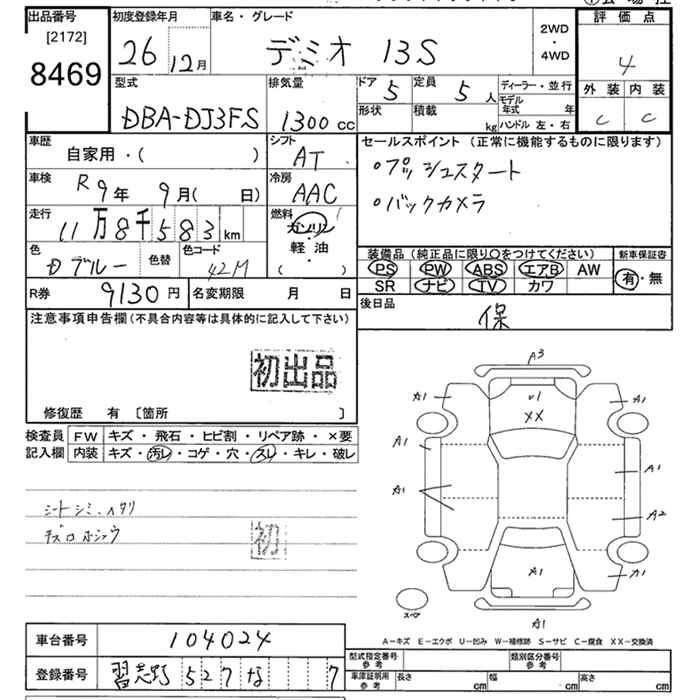 出品番号 初度登録年月 車名・グレード 評価点
[2172] 2WD
8469 26 12月 デミオ 13S ・ 4
4WD
型式 排気量 ドア 5 定員 5人 ディーラー・並行 外装 内装
DBA-DJ3FS 1300cc 形状 積載 kg モデル年式 年 C C
ハンドル 左・右
車歴 シフト セールスポイント (正常に機能するものに限ります)
自家用・( ) AT ・プッシュスタート
車検 R9年 9月( 日) 冷房 AAC ・バックカメラ
走行 11万8千583km 燃料 ガソリン
・
軽・油
( )
色 Dブルー 色替 色コード 42M
装備品 (純正品に限り○をつけてください) 新車保証書
PS PW ABS エアB AW 有・無
SR ナビ TV カワ
R券 9130円 名変期限 月 日 後日品
保
注意事項申告欄(不具合内容等は具体的に記入して下さい)
初出品
修復歴 有 〔箇所 〕
検査員 FW キズ・飛石・ヒビ割・リペア跡・×要
記入欄 内装 キズ・汚レ・コゲ・穴・スレ・キレ・破レ
シートシミ・ヘタリ
初
A3
A1 A1
XX
A1 A1
A1 A2
A1 A1 A1
スペア
A1
A-キズ E-エクボ U-凹み W-補修跡 S-サビ C-腐食 XX-交換済
車台番号 104024
型式指定番号 参考 類別区分番号 参考
登録番号 習志野 527 な 7
車庫証明用 参考 長さ cm 幅 cm 高さ cm